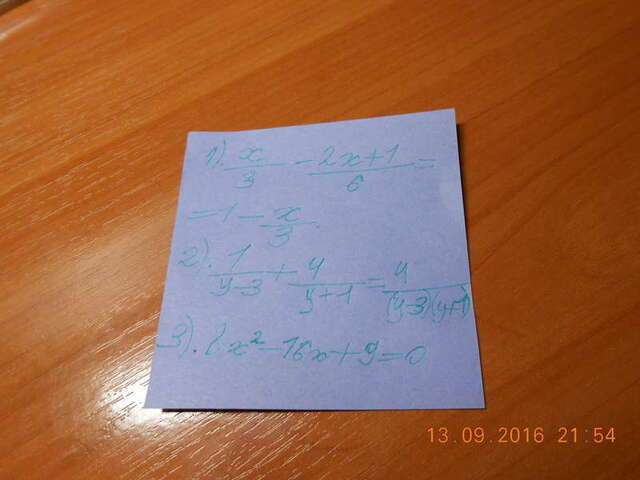 1). x/3 - 2x+1/6 =
= 1 - x/3.
2). 1/y-3 + 4/y+1 = 4/(y-3)(y+1)
3). x² - 16x + 9 = 0
13.09.2016 21:54